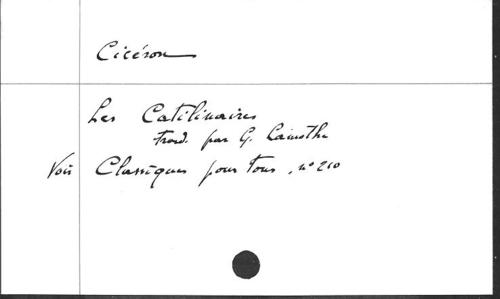 Cicéron
Les Catilinaires
trad. par G. Lamothe
Voir Classiques pour tous, n° 210